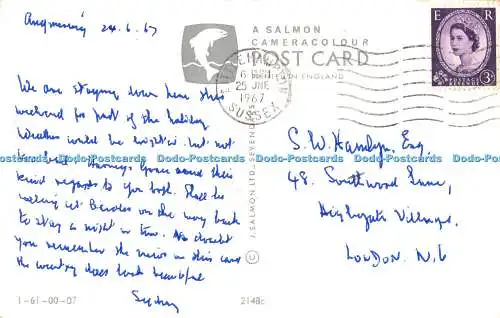 Angmering 24.6.67
We are staying down here this
weekend for part of the holiday
Weather could be brighter but not
kind regards to you both. Shall be
calling at Beccles on the way back
to stay a night in town. No doubt
you remember the views on this card
the country does look beautiful
Sydney
1-61-00-07
A SALMON
CAMERACOLOUR
POST CARD
J. SALMON LTD., SEVENOAKS
2148c
LITTLEHAMPTON
6 PM
25 JNE
1967
SUSSEX
E R
POSTAGE REVENUE
3D
S. W. Hamlyn, Esq,
48, Southwood Lane,
Highgate Village,
LONDON. N.6
Dodo-Postcards Dodo-Postcards Dodo-Postcards Dodo-Postcards Dodo-Postcards